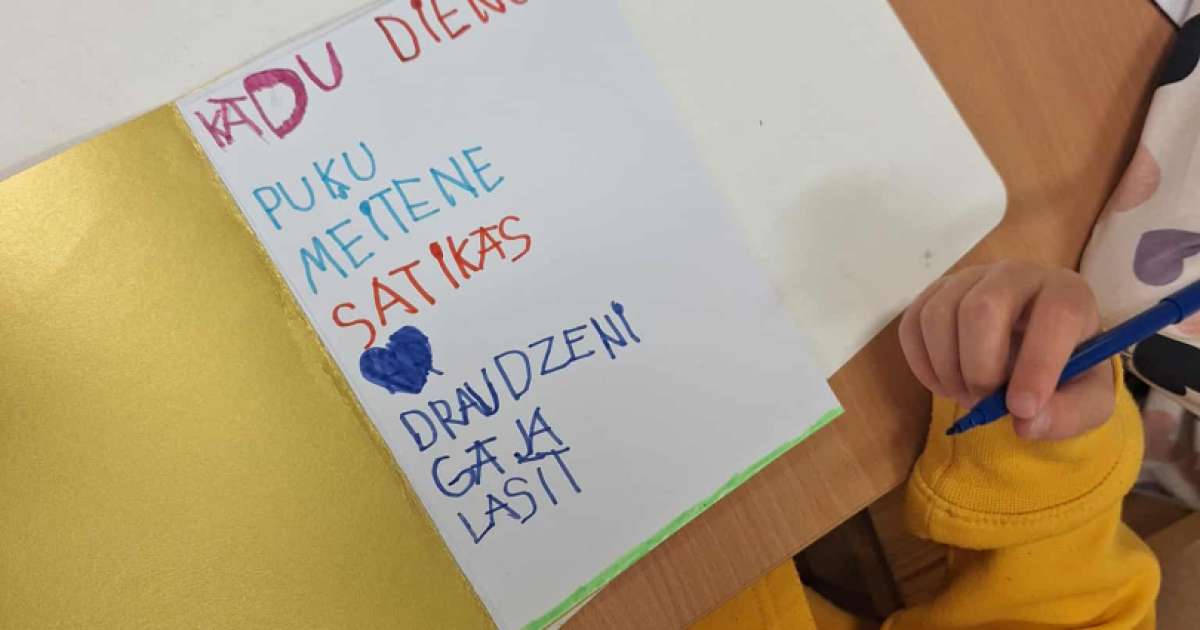 KĀDU DIENU
PUĶU
MEITENE
SATIKAS
DRAUDZENI
GĀJA
LASIT